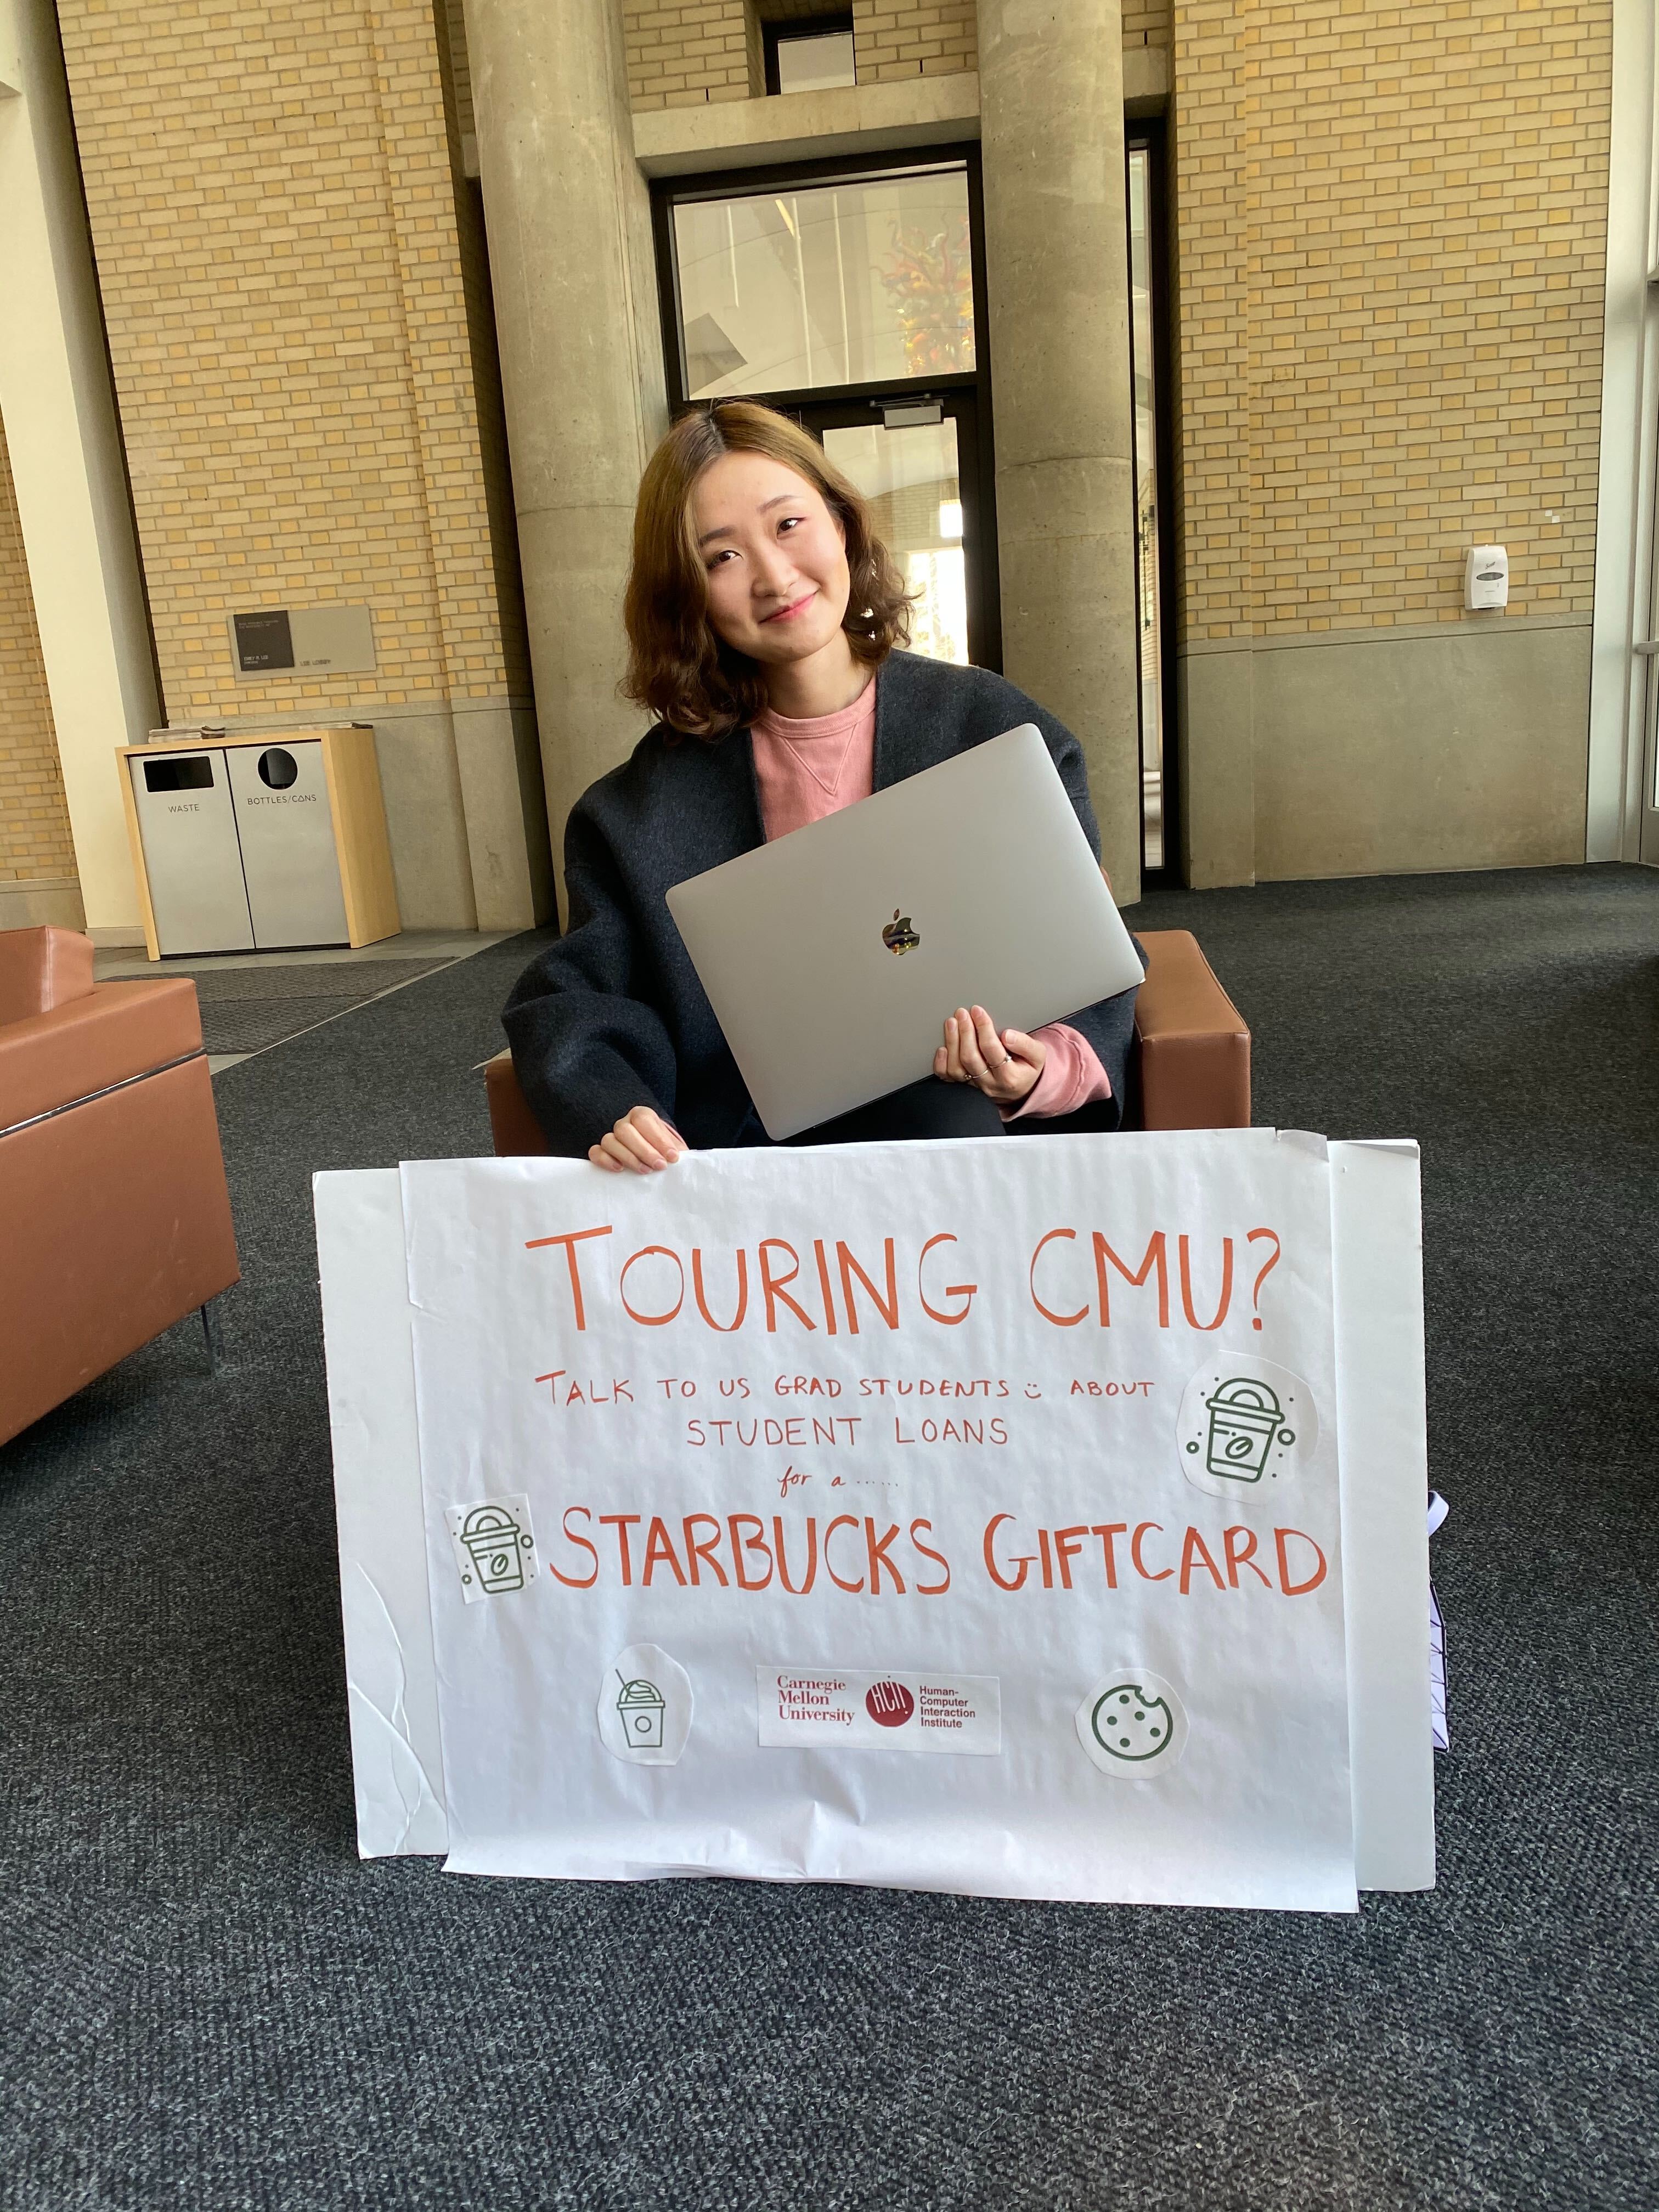 WASTE
BOTTLES/CANS
TOURING CMU?
TALK TO US GRAD STUDENTS :) ABOUT
STUDENT LOANS
for a ......
STARBUCKS GIFTCARD
Carnegie
Mellon
University
HCII
Human-
Computer
Interaction
Institute